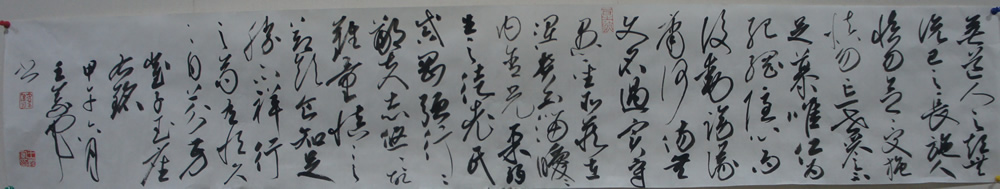 無道人之短無
說己之長施人
慎勿念受施
慎勿忘世譽不
足慕唯仁為
紀綱隱心而
後動謗議
庸何傷無
使名過實守
愚聖所臧在
涅貴不淄曖曖
內含光柔弱
生之徒老氏
誡剛強行行
鄙夫志悠悠故
難量慎
言節飲食知足
勝不祥行
之苟有恆久
久自芬芳
崔子玉座
右銘
甲午六月
王
书